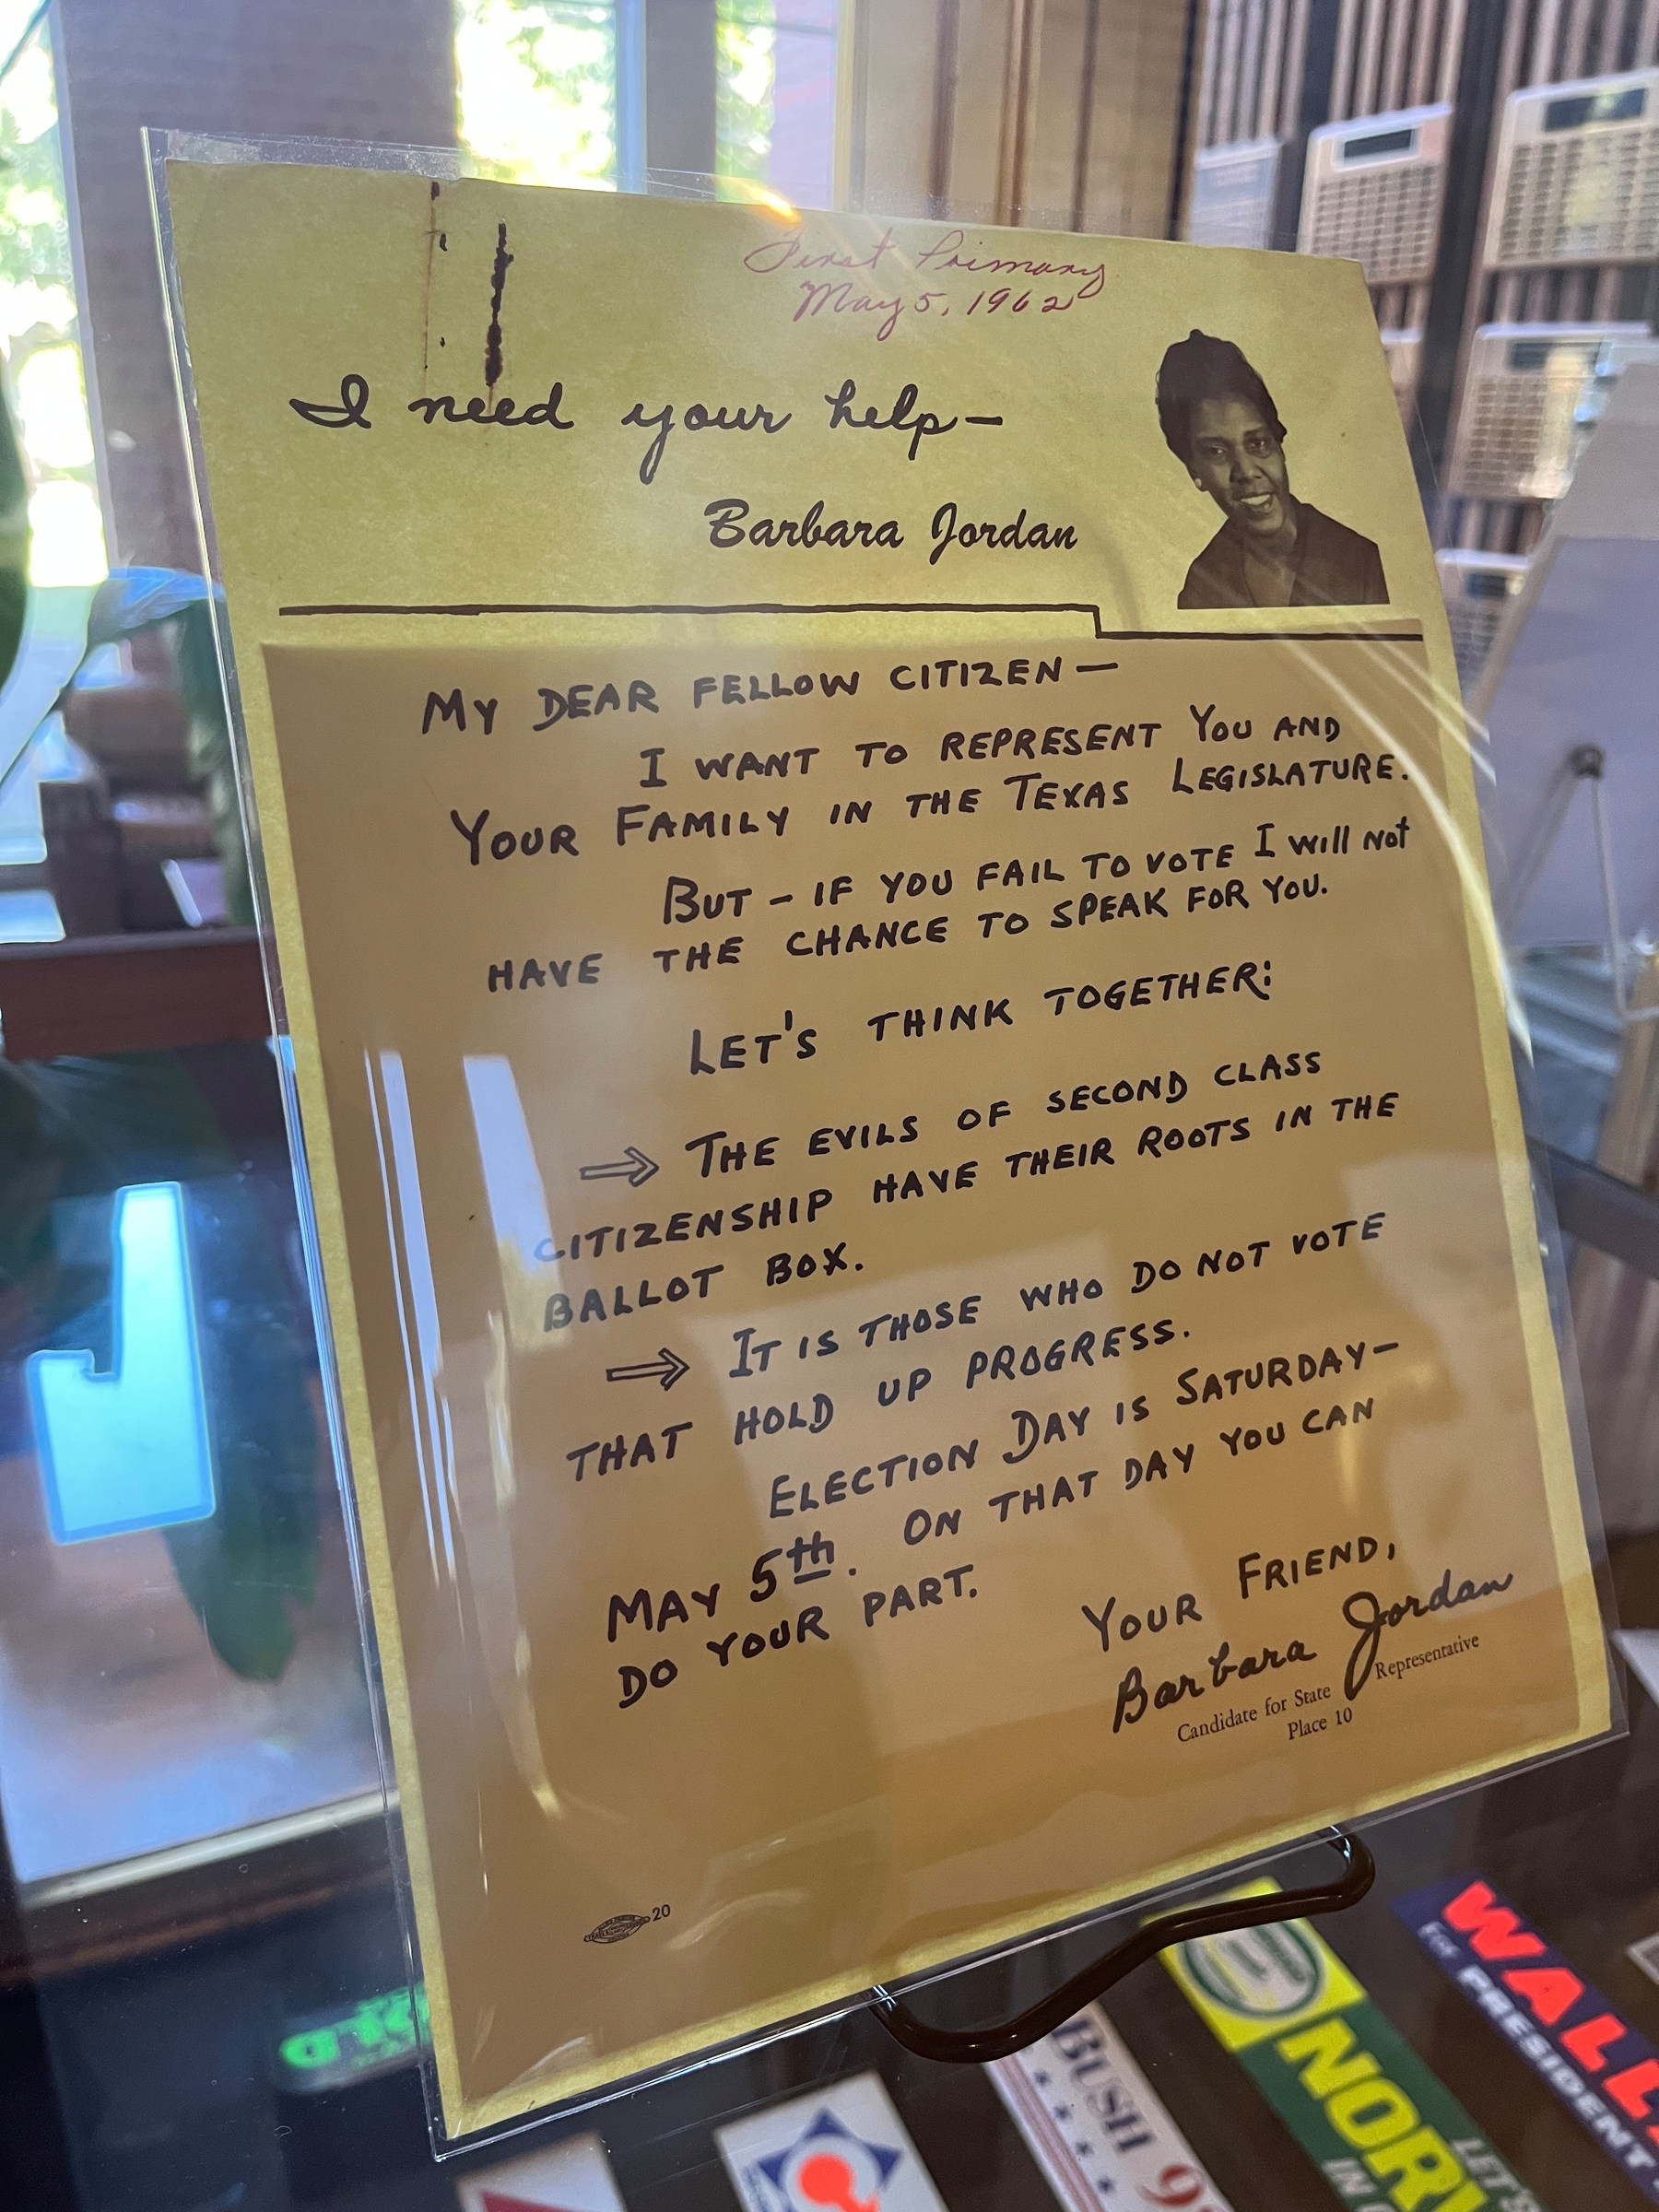 First Primary
May 5, 1962
I need your help—
Barbara Jordan
MY DEAR FELLOW CITIZEN —
I WANT TO REPRESENT YOU AND
YOUR FAMILY IN THE TEXAS LEGISLATURE.
BUT - IF YOU FAIL TO VOTE I will not
HAVE THE CHANCE TO SPEAK FOR YOU.
LET'S THINK TOGETHER:
⇒ THE EVILS OF SECOND CLASS
CITIZENSHIP HAVE THEIR ROOTS IN THE
BALLOT BOX.
⇒ IT IS THOSE WHO DO NOT VOTE
THAT HOLD UP PROGRESS.
ELECTION DAY IS SATURDAY—
MAY 5th. ON THAT DAY YOU CAN
DO YOUR PART.
YOUR FRIEND,
Barbara Jordan
Candidate for State Representative
Place 10
20
BUSH 9
NORV
LET'S
IN
WALL
FOR PRESIDENT